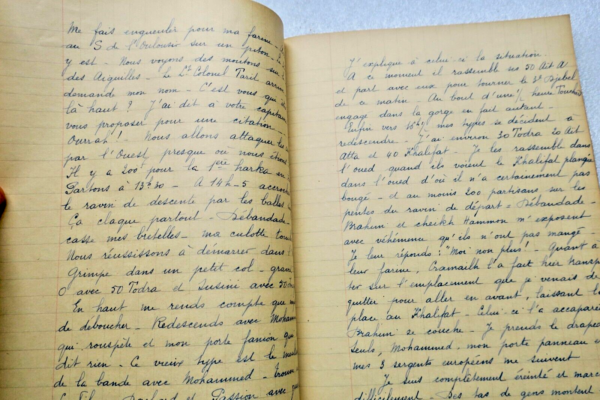 Me fais engueuler pour ma farine
au S de l'
y est - Nous voyons des moutons sur
des Aiguilles - le Lt Colonel Tarit arri
demande mon nom - C'est vous qui
là haut ? J'ai dit à votre capitain
vous proposer pour une citation -
Ourrah ! Nous allons attaquer
par l'Ouest presque où nous étions
Il y a 200 pour la 1ère harka
Partons à 13h30 - A 14h-5 accro
le ravin de descente par les balles
Ça claque partout - Débandade
casse mes bretelles - ma culotte tom
Nous réussissons à démarrer dans
Grimpe dans un petit col - gran
O avec 50 Todra et Susini avec 50
En haut, me rends compte que
de déboucher - Redescends avec Moham
qui rouspète et mon porte fanion qui
dit rien - Ce vieux type est le
de la bande avec Mohammed -
et Passion avec
J'explique à celui-ci la situation.
A ce moment il rassemble ses 50 Ait A
et part avec eux pour tourner le Djebel
de ce matin - Au bout d'une 1/2 heure
engage dans la gorge en fait autant -
Enfin vers 16h mes types se décident à
redescendre - J'ai environ 30 Todra 20 Ait
Atta et 40 Khalifat - Je les rassemble dans
l'oued quand ils voient le Khalifat
dans l'oued d'où il n'a certainement pas
bougé - et au moins 200 partisans sur les
pentes du ravin de départ - Débandade -
Brahim et cheikh Hammon m'exposent
avec véhémence qu'ils n'ont pas mangé
Je leur réponds : "Moi non plus ! - Quant à
leur farine, l'a fait hier transpor
ter sur l'emplacement que je venais de
quitter pour aller en avant, laissant la
place au Khalifat - Celui-ci l'a accaparée
Brahim se couche - Je prends le drapeau
Seuls, Mohammed - mon porte panneau et
mes 3 sergents européens me suivent
Je suis complètement éreinté et marche
difficilement - Des tas de gens montent